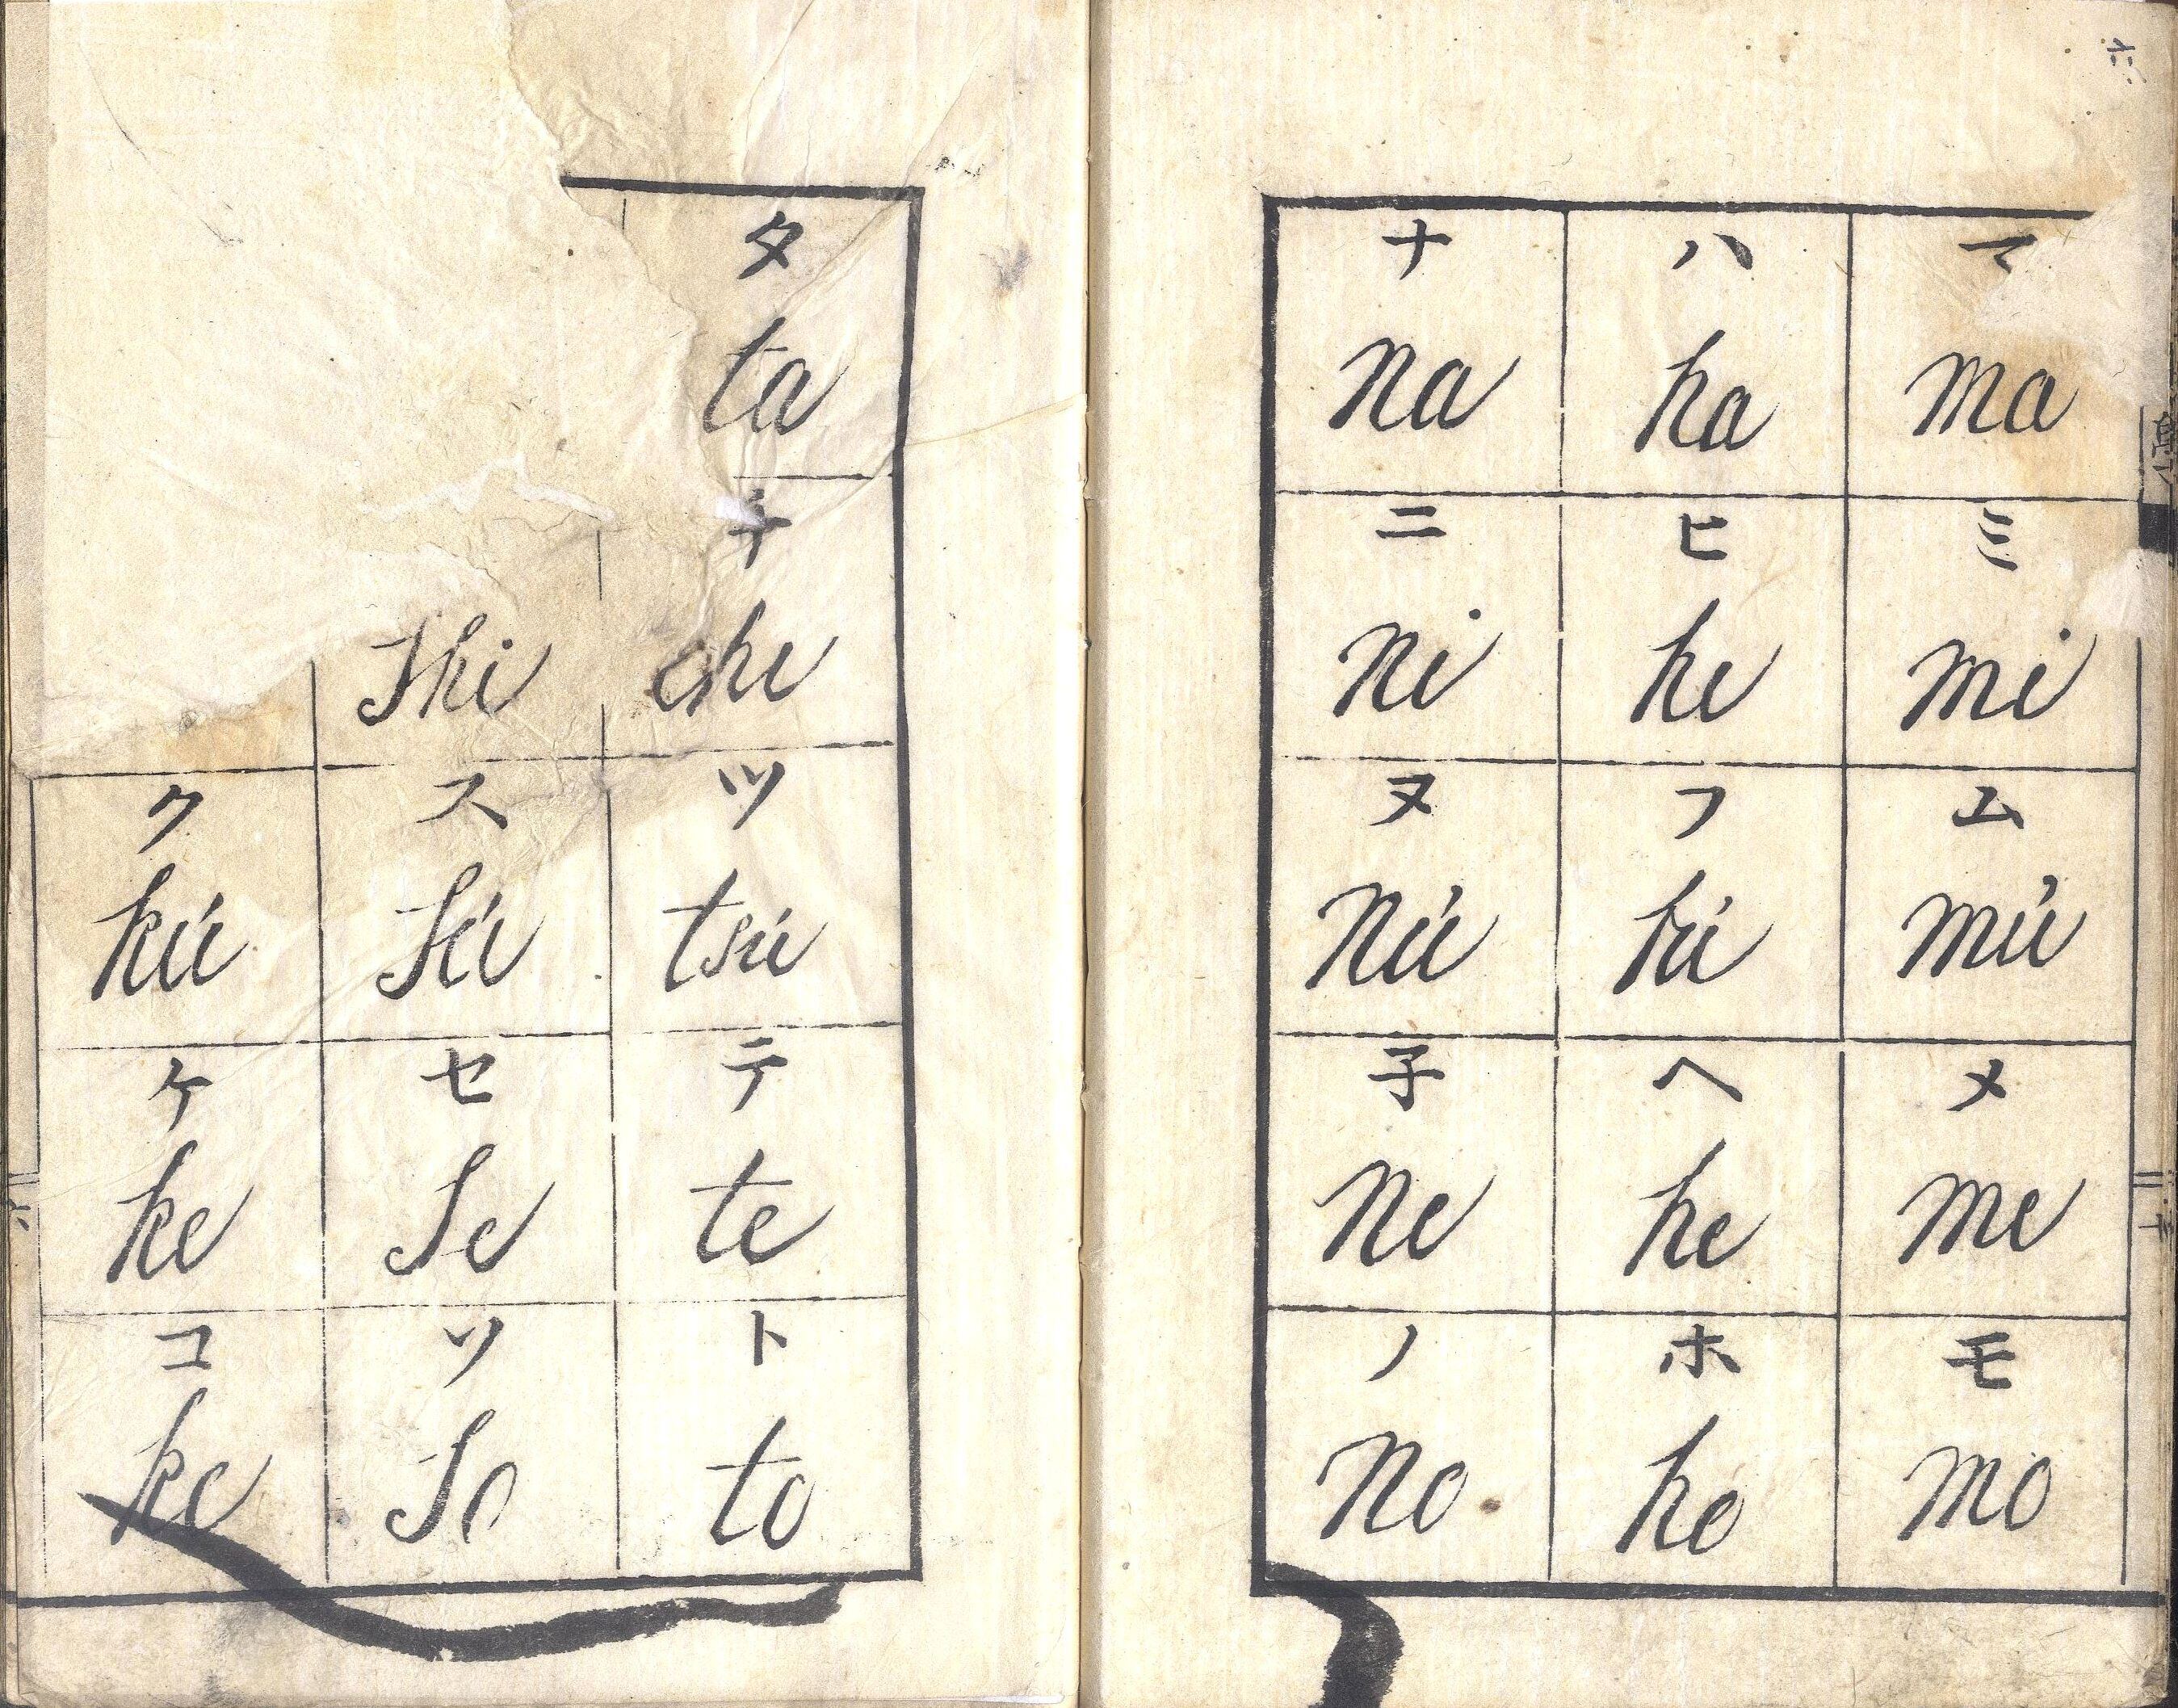 タ
ta
チ
shi chi
ク ス ツ
kú sú tsú
ケ セ テ
ke se te
コ ソ ト
ko so to
ナ ハ マ
na ha ma
ニ ヒ ミ
ni hi mi
ヌ フ ム
nú fú mú
子 ヘ メ
ne he me
ノ ホ モ
no ho mo